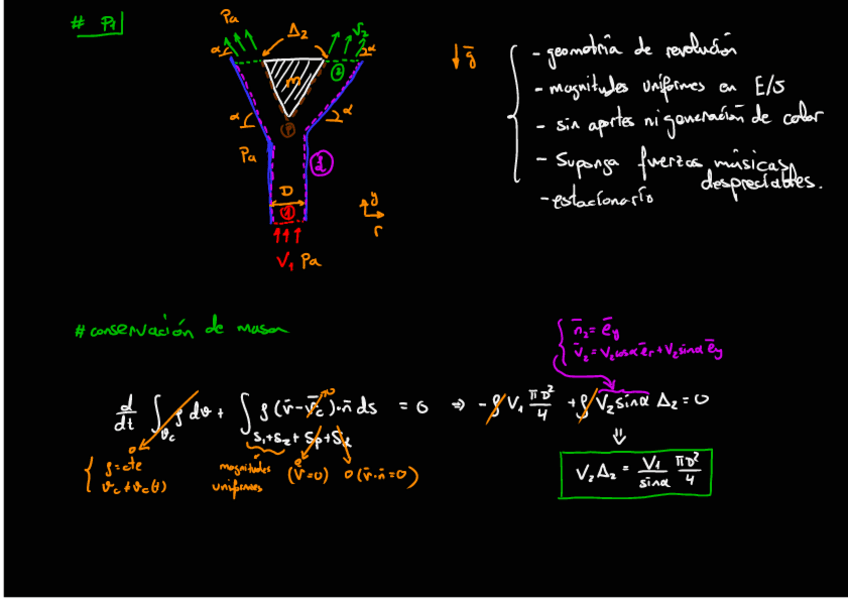 # P1
Pa
Δ2
V2
α
α
2
m
α
α
P
Pa
L
D
1
y
r
V1 Pa
g̅
- geometría de revolución
- magnitudes uniformes en E/S
- sin aportes ni generación de calor
- Suponga fuerzas másicas despreciables.
- estacionario
# conservación de masa
n̅2 = e̅y
v̅2 = V2 cosα e̅r + V2 sinα e̅y
d/dt ∫Vc ρ dϑ + ∫S1+S2+Sp+SL ρ (v̅ - v̅c)·n̅ ds = 0 ⇒ -ρ V1 πD²/4 + ρ V2 sinα Δ2 = 0
0
ρ = cte
ϑc ≠ ϑc(t)
magnitudes uniformes
0 (v̅ = 0)
0 (v̅·n̅ = 0)
⇓
V2 Δ2 = V1/sinα πD²/4